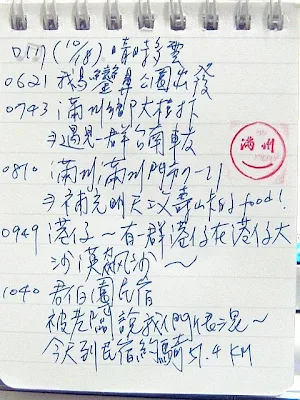 D(11) (10/18) 晴時多雲
0621 鵝鑾鼻公園出發
0743 滿州鄉大樹下
→遇見一群台南車友
滿州
0810 滿州滿州門市7-11
→補充明天以壽山的food!
0949 港仔~有群港仔在港仔大
沙漠飆沙~
1040 君伯園民宿
被老闆說我們很混~
今天到民宿約騎51.4 KM